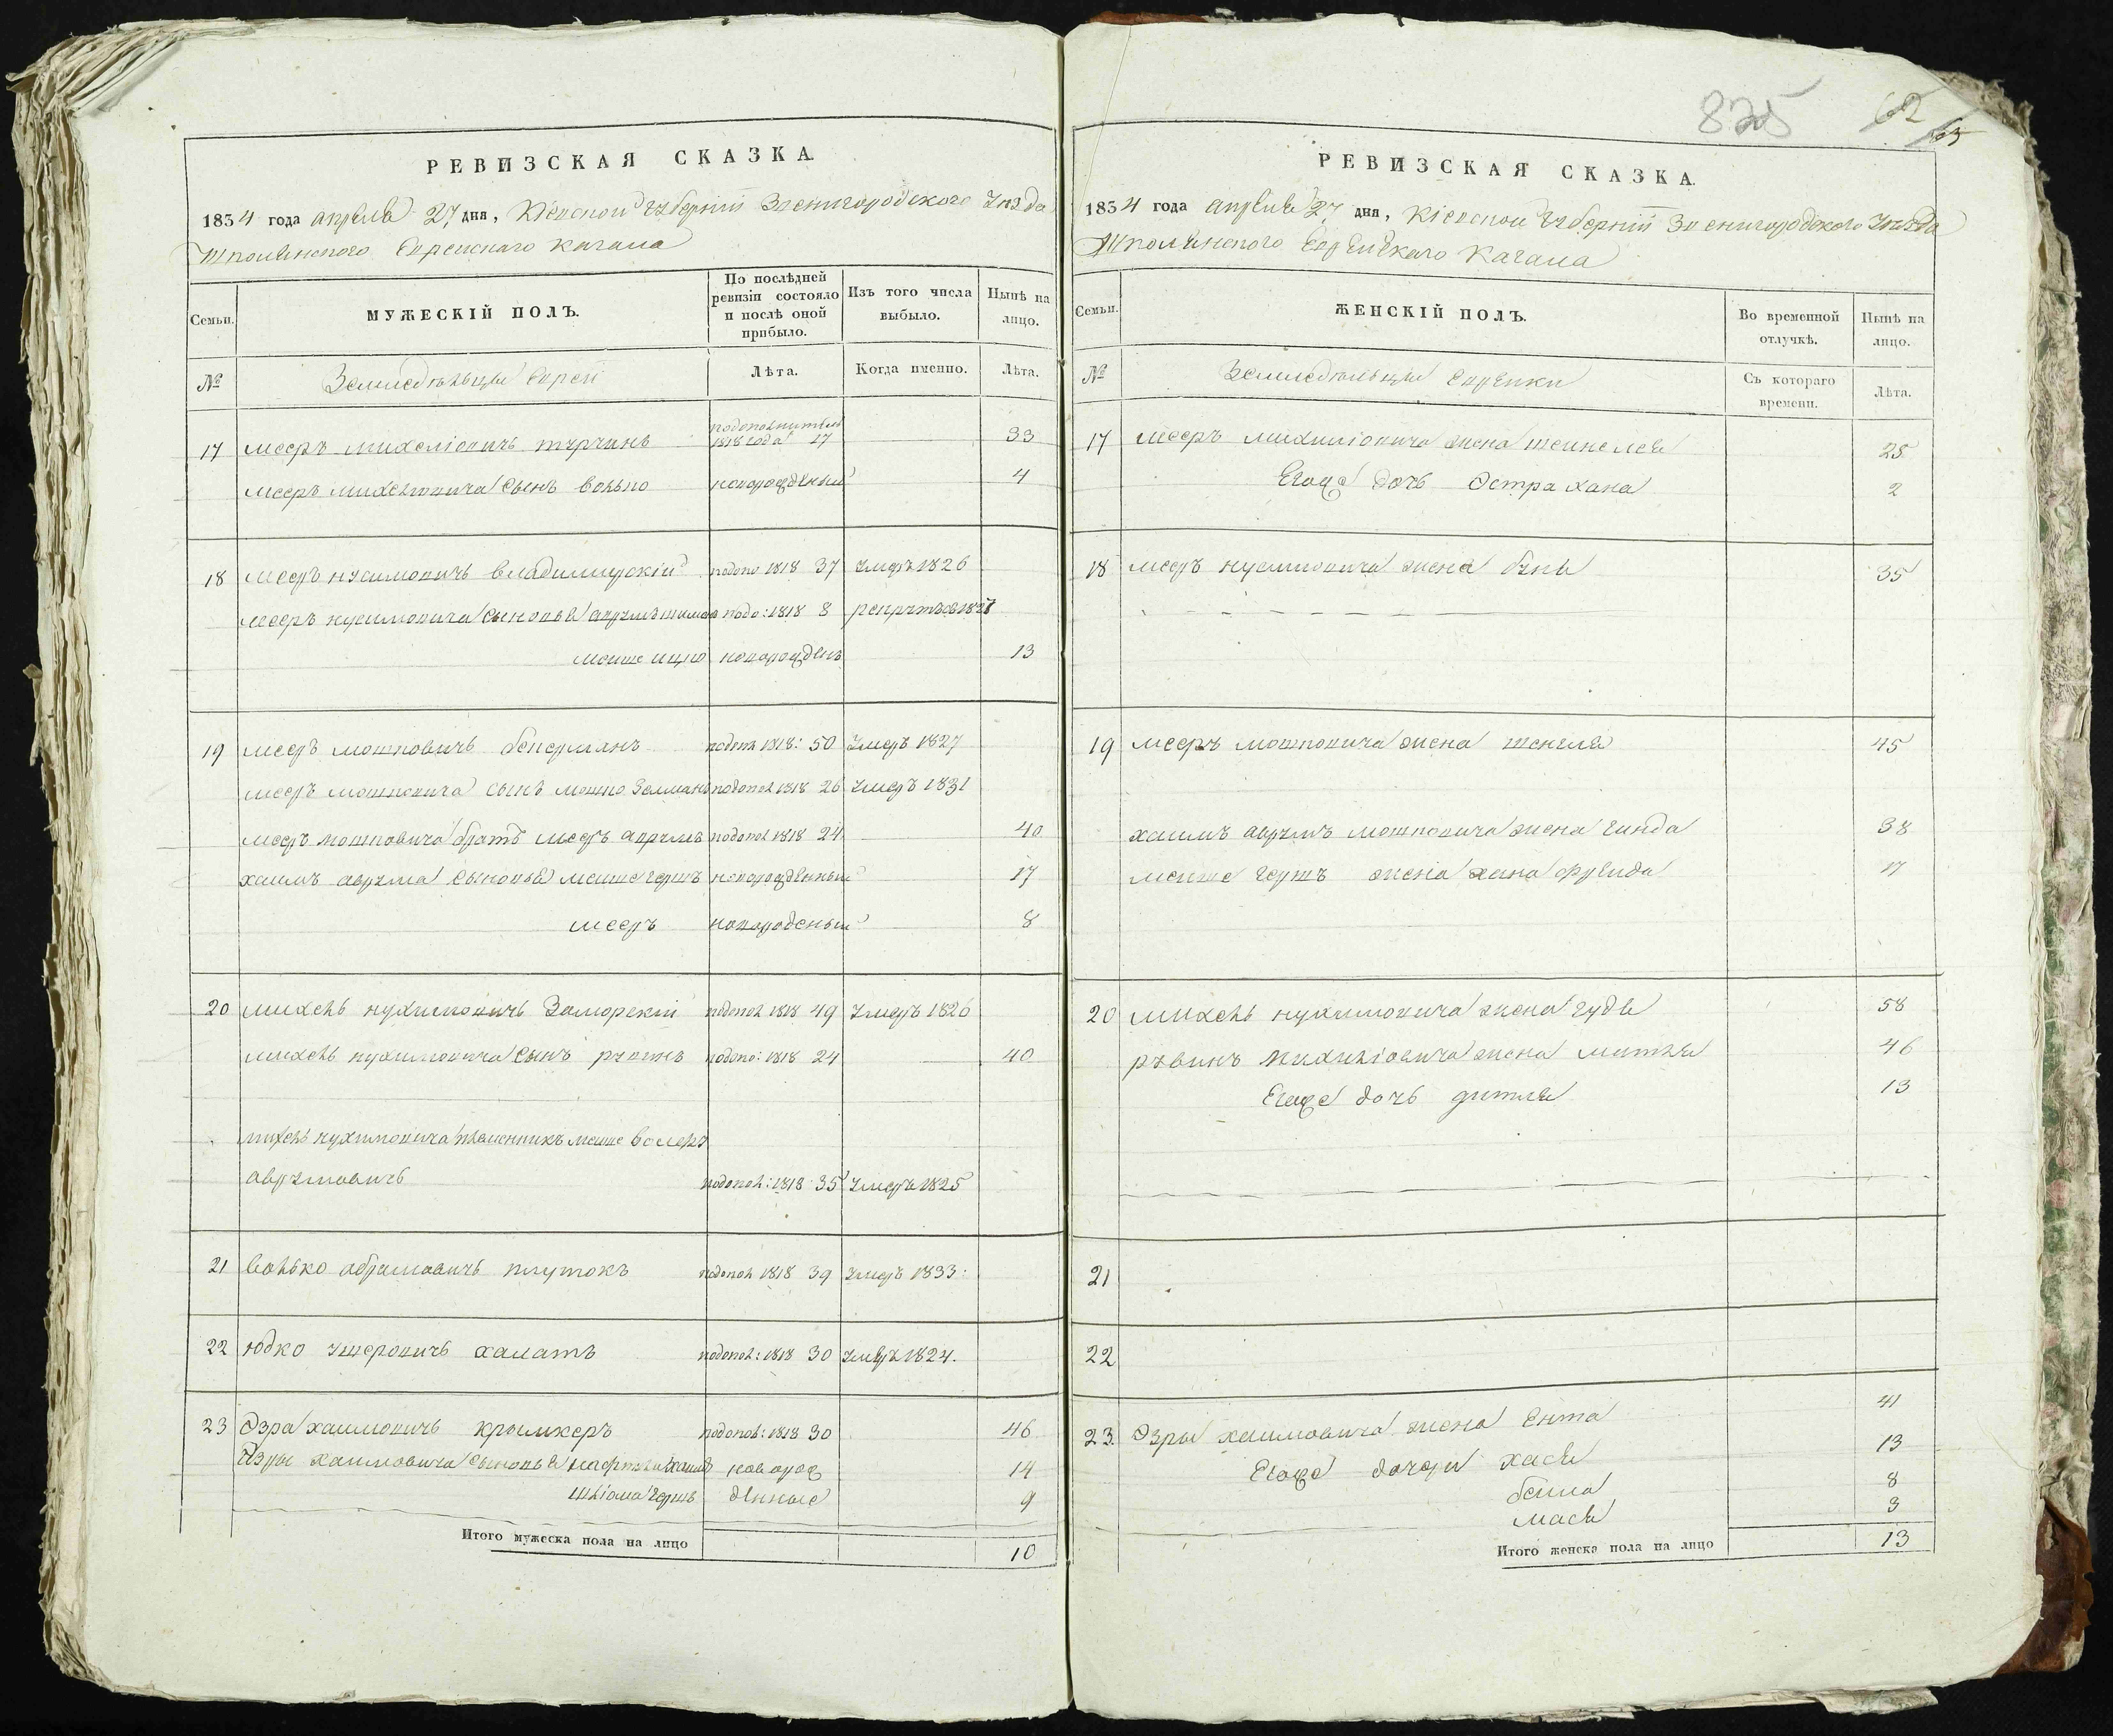 825
62
63
РЕВИЗСКАЯ СКАЗКА.
1834 года апреля 27 дня, Кіевской губерніи Звенигородского Уезда
Шполянского Еврейскаго кагала
Семьи.
МУЖЕСКІЙ ПОЛЪ.
По послѣдней ревизіи состояло и послѣ оной прибыло.
Изъ того числа выбыло.
Нынѣ на лицо.
№
Земледельцы Евреи
Лѣта.
Когда именно.
Лѣта.
17 мееръ михелiовичъ турчинъ 1818 года 17 33
мееръ михелiовича сынъ волько новорожденный 4
18 мееръ нусимовичъ владимирскій подопо 1818 37 умеръ 1826
мееръ нусимовича сыновья подо: 1818 8
мошко ицко новорожденъ 13
19 мееръ мошковичъ подопол 1818: 50 умеръ 1827
мееръ мошковича сынъ мошко Зелманъ подопол 1818 26 умеръ 1831
мееръ мошковича братъ аврумъ подопол 1818 24 40
хаимъ аврума сыновья мошко гершъ новорожденный 17
мееръ новорожденый 8
20 михель нухимовичъ Заморскій подопол 1818 49 умеръ 1826
михель нухимовича сынъ рувинъ подопо: 1818 24 40
михель нухимовича племянникъ
аврумовичъ подопол: 1818 35 умеръ 1825
21 волько абрамовичъ плутокъ подопол 1818 39 умеръ 1833.
22 Юдко ушеровичъ халатъ подопол: 1818 30 умеръ 1824.
23 Эзра хаимовичъ крымкеръ подопол: 1818 30 46
Эзры хаимовича сыновья новорож 14
шліома гершъ денные 9
Итого мужеска пола на лицо 10
РЕВИЗСКАЯ СКАЗКА.
1834 года апреля 27 дня, Кіевской губерніи Звенигородского Уезда
Шполянского Еврейскаго Кагала
Семьи.
ЖЕНСКІЙ ПОЛЪ.
Во временной отлучкѣ.
Нынѣ на лицо.
№
Земледельцы еврейки
Съ котораго времени.
Лѣта.
17 мееръ михелiовича жена шейнелея 25
Егоже дочь Эстра хана 2
18 мееръ нусимовича жена буня 35
19 мееръ мошковича жена 45
хаимъ аврумъ мошковича жена гинда 38
гершъ жена хана фрейда 17
20 михель нухимовича жена гудя 58
рувинъ михелiовича жена 46
Егоже дочь 13
21
22
23. Эзры хаимовича жена Ента 41
Егоже дочери хася 13
бейла 8
мася 3
Итого женска пола на лицо 13